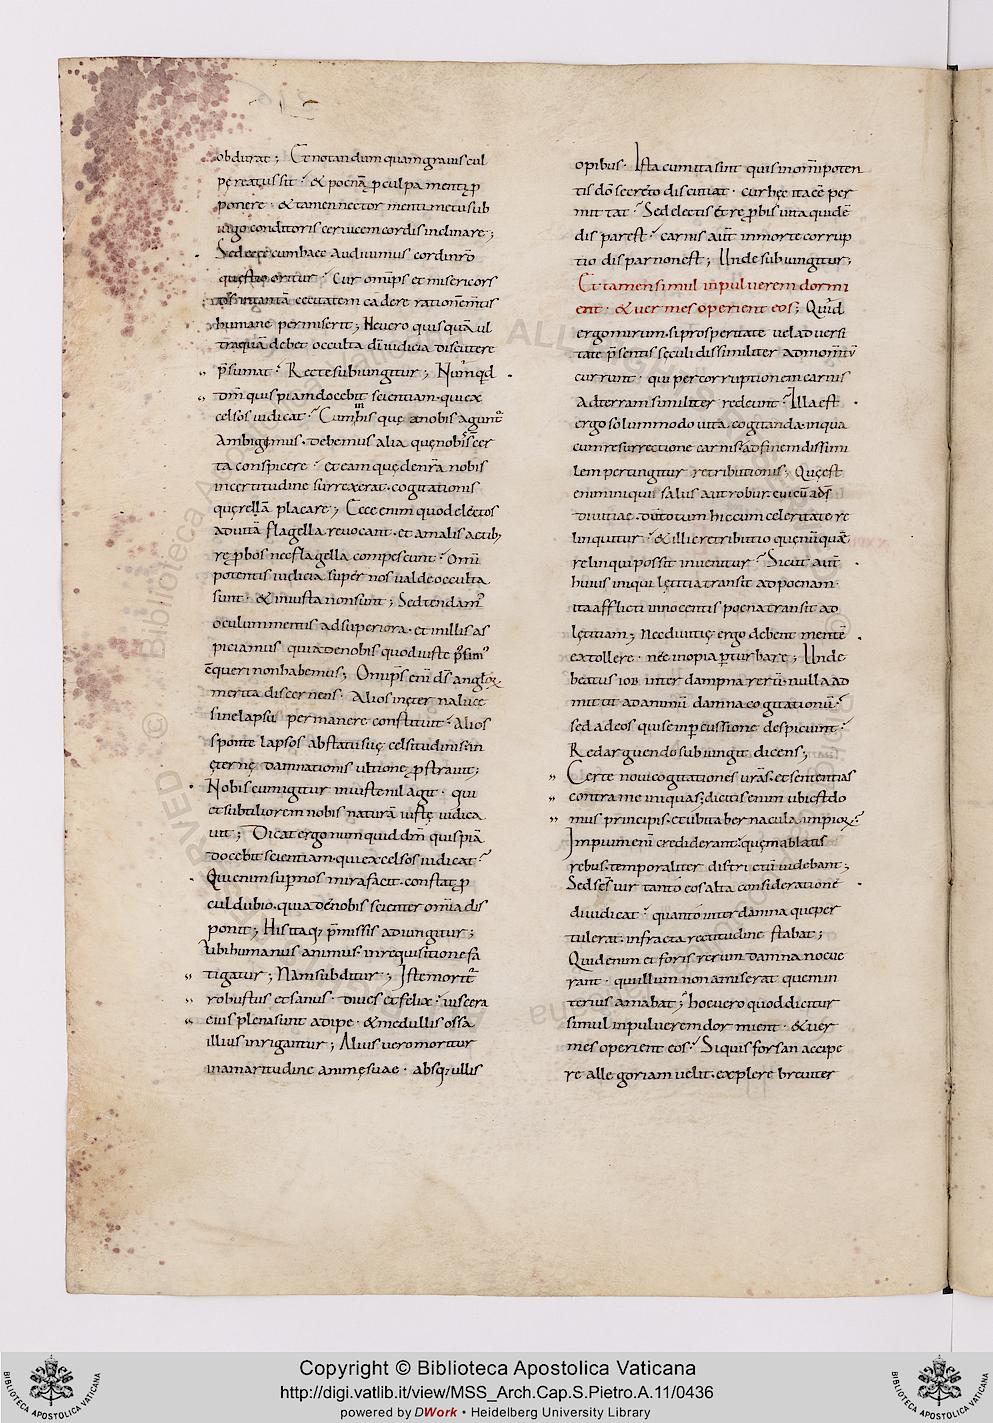 obdurat; Et notandum quam gravis cul
pę reatus sit. & poenā p culpa mentę p
ponere. & tamen nec tor menti metu sub
iugo conditoris cervicem cordis inclinare;
Sed ecce cum haec audivimus cordi nr̄o
questio oritur. Cur omīps et misericors
d̄s in tantā cecitatem cadere rationem mentis
humane permiserit; Ne vero quisquā ul
tra quā debet occulta dī iudicia discutere
p̄sumat. Recte subiungitur; Numqd
dm̄ quispiam docebit scientiam. qui ex
celsos iudicat. Cum in his quę a nobis agunt̄
ambigimus. debemus alia quę nobis cer
ta conspicere. et eam quę de nr̄a nobis
incertitudine surrexerat. cogitationis
querellā placare; Ecce enim quod electos
ad vitā flagella revocant. et a malis actib;
reprobos nec flagella compescunt. Omī
potentis iudicia super nos valde occulta
sunt. & iniusta non sunt; Sed tendam;
oculum mentis ad superiora. et in illis as
piciamus quia de nobis quod iuste p̄sim;
c̄queri non habemus; Omīps enī ds̄ anglox
merita discernens. Alios in ęter na luce
sine lapsu permanere constituit. Alios
sponte lapsos ab statu suę celsitudinis. in
ęternę damnationis ultione p̄stravit;
Nobiscum igitur iniuste nil agit. qui
et subtiliorem nobis naturā iustę iudica
vit; Dicat ergo numquid dm̄ quispiā
docebit scientiam. qui excelsos iudicat.
Qui enim sup nos mira facit. constat p
cul dubio. quia de nobis scienter omīa dis
ponit; His itaq; p̄missis adiungitur;
Ubi humanus animus. in requisitione fa
tigatur; Nam subditur; Iste morit̄
robustus et sanus. dives et felix. viscera
eius plena sunt adipe. & medullis ossa
illius inrigantur; Alius vero moritur
in amaritudine animę suae. absq; ullis
opibus. Ista cum ita sint quis in omīpoten
tis dī secreto discutiat. cur hęc ita eē per
mittat. Sed electis et repbis vita quidē
dispar est. carnis aūt in morte corrup
tio dispar non est; Unde subiungitur;
Et tamen simul in pulverem dormi
ent. & vermes operient eos; Quid
ergo mirum. si prosperitate vel adversi
tate p̄sentis sęculi dissimiliter ad momītū
currunt. qui per corruptionem carnis
ad terram similiter redeunt. Illa est
ergo solummodo vita cogitanda. in qua
cum resurrectione carnis. ad finem dissimi
lem pertingitur retributionis; Quę est
enim iniqui salus aut robur. cui
divitiae. dū totum hic cum celeritate re
linquitur. & illic retributio quę nūquā
relinqui possit invenitur. Sicut aūt
huius iniqui lętitia transit ad poenam.
ita afflicti innocentis poena transit ad
lętitiam; Nec divitię ergo debent mentē
extollere. nec inopia pturbare; Unde
beatus iob inter dampna rerū nulla ad
mittit ad animū damna cogitationū.
sed ad eos qui se in pcussione despiciunt.
Redarguendo subiungit dicens;
Certe novi cogitationes vr̄as. et sententias
contra me iniquas; dicitis enim ubi est do
mus principis. et ubi tabernacula impiox.
Impium enī crediderant. quem ablatis
rebus. temporaliter distrı ctū videbant;
Sed sc̄s vir tanto eos alta consideratione
diiudicat. quanto inter damna que per
tulerat. infracta rectitudine stabat;
Quid enim ei foris rerum damna nocue
rant. qui illum non amiserat quem in
terius amabat; hoc vero quod dicitur
simul in pulverem dormient. & ver
mes operient eos. Si quis forsan accipe
re allegoriam velit. explere breviter
Copyright © Biblioteca Apostolica Vaticana
http://digi.vatlib.it/view/MSS_Arch.Cap.S.Pietro.A.11/0436
powered by DWork • Heidelberg University Library